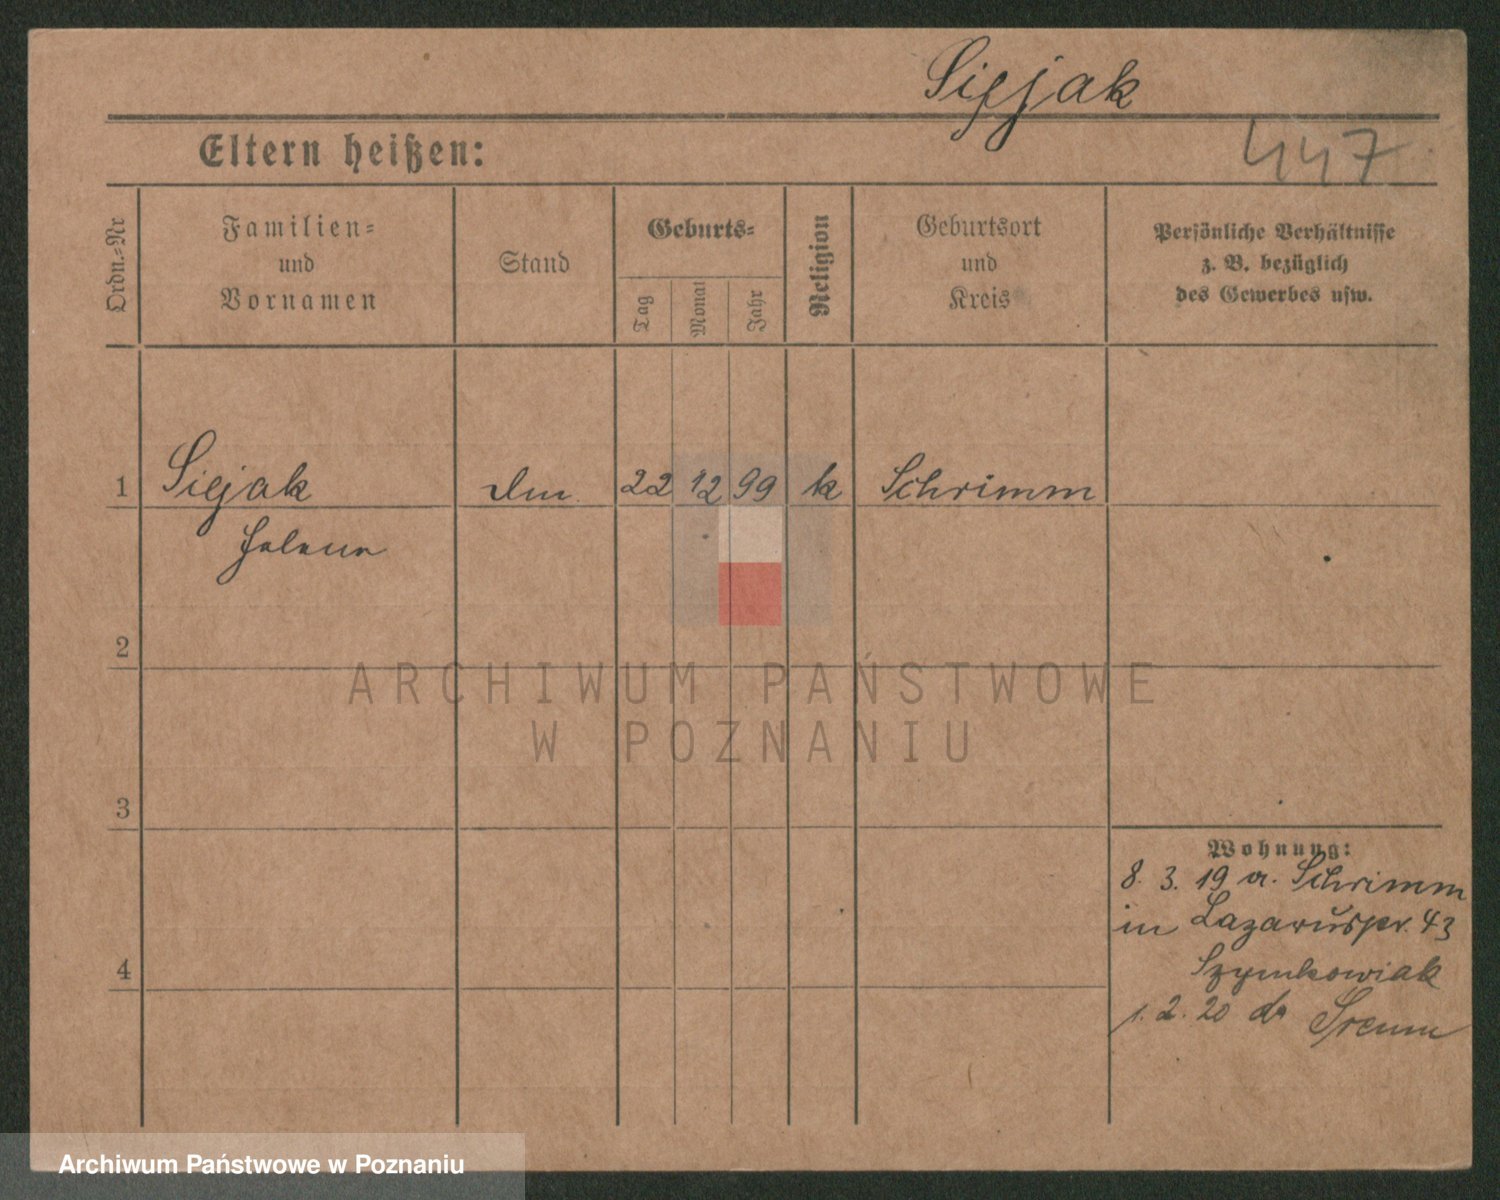 Siejak
447
Eltern heißen:
Ordn.=Nr
Familien=
und
Vornamen
Stand
Geburts=
Tag
Monat
Jahr
Religion
Geburtsort
und
Kreis
Persönliche Verhältnisse
z. B. bezüglich
des Gewerbes usw.
1 Siejak 22 12 99 k Schrimm
Helene
2
3
4
Wohnung:
8. 3. 19 a. Schrimm
in Lazarusstr. 43
Szymkowiak
1. 2. 20 do Srem
ARCHIWUM PAŃSTWOWE
W POZNANIU
Archiwum Państwowe w Poznaniu